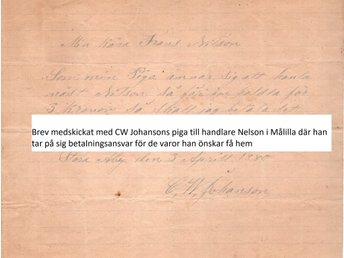 Min Kära Frans Nilson
Som min Piga ämnar sig att hanla
med Nelson så får hon
5 Kronor så skall jag betala det
Brev medskickat med CW Johansons piga till handlare Nelson i Målilla där han
tar på sig betalningsansvar för de varor han önskar få hem
Stora Åby den 3 Aprill 1880
C. W. Johanson